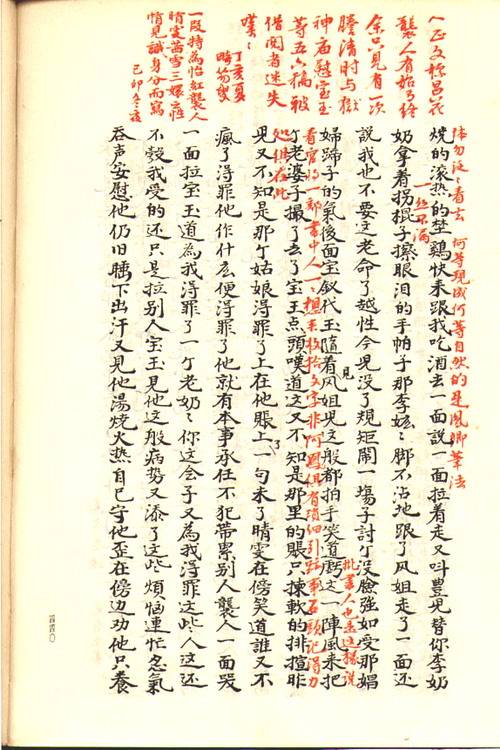 正文標昌花
襲人有始有終
余只見有一次
謄清时与獄
神庙慰宝玉
等五六稿被
借閱者迷失
嘆〻
丁亥夏
畸笏叟
一段特為怡紅襲人
晴雯茜雪三嬛之性
情見識身分而寫
己卯冬夜
勿泛〻看去
何等現成何等自然的是凤卿筆法
燒的滚热的埜鷄快来跟我吃酒去一面說一面拉着走又呌豊児替你李奶
一丝不漏
奶拿着拐棍子擦眼泪的手帕子那李嬷〻脚不沾地跟了凤姐走了一面还
說我也不要这老命了越性今児没了規矩鬧一塲子討个没臉強如受那娼
批書人也是这樣說
婦蹄子的氣後面宝釵代玉隨着凤姐児見这般都拍手笑道虧这一陣風来把
看官将一部書中人一〻想来收拾文字非阿鳳俱有瑣細引跡事石頭記得力
處俱在此
个老婆子撮了去了宝玉点頭嘆道这又不知是那里的賬只揀軟的排揎昨
児又不知是那个姑娘得罪了上在他賬上一句未了晴雯在傍笑道誰又不
瘋了得罪他作什庅便得罪了他就有本事承任不犯帶累别人襲人一面哭
一面拉宝玉道為我得罪了一个老奶〻你这会子又為我得罪这些人这还
不彀我受的还只是拉别人宝玉見他这般病势又添了这些煩惱連忙忍氣
吞声安慰他仍旧睡下出汗又見他湯燒火热自己守他歪在傍边劝他只養